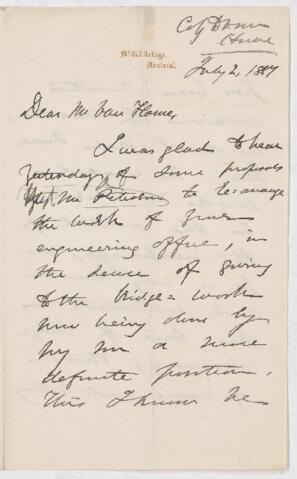 McGill College,
Montreal.
July 2, 1887
Dear Mr Van Horne,
I was glad to hear
yesterday of some proposals
Mr Peterson to re-arrange
the work of your
engineering office, in
the sense of giving
to the bridge-work
now being done by
my son a more
definite position.
This I know he